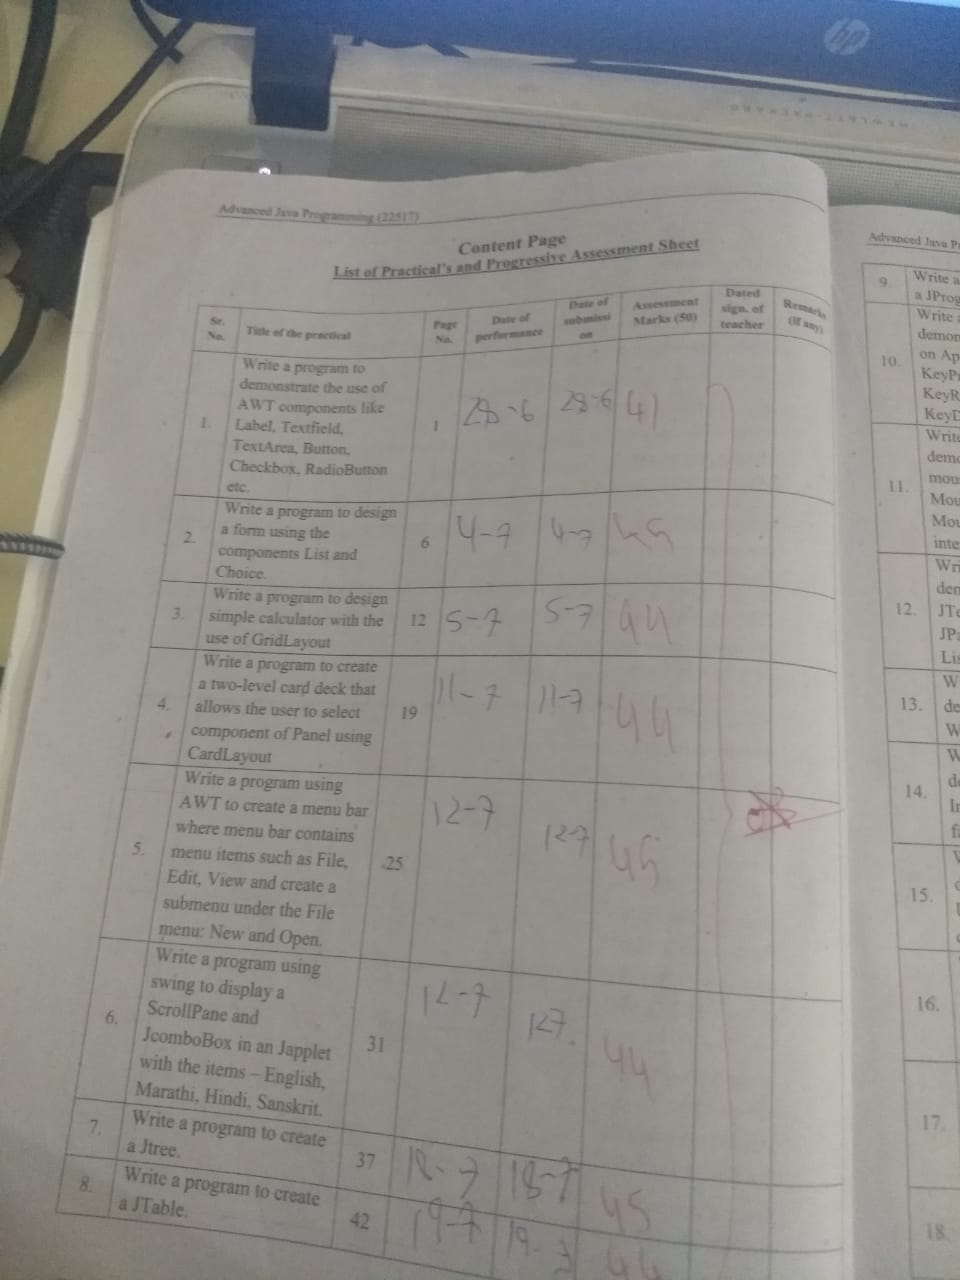 hp
HEWLETT-PACKARD
Advanced Java Programming (22517)
Content Page
List of Practical's and Progressive Assessment Sheet
Sr. No.
Title of the practical
Page No.
Date of performance
Date of submissi on
Assessment Marks (50)
Dated sign. of teacher
Remarks (if any)
1.
Write a program to
demonstrate the use of
AWT components like
Label, Textfield,
TextArea, Button,
Checkbox, RadioButton
etc.
1
28-6
28-6
41
2.
Write a program to design
a form using the
components List and
Choice.
6
4-7
4-7
45
3.
Write a program to design
simple calculator with the
use of GridLayout
12
5-7
5-7
44
4.
Write a program to create
a two-level card deck that
allows the user to select
component of Panel using
CardLayout
19
11-7
11-7
44
5.
Write a program using
AWT to create a menu bar
where menu bar contains
menu items such as File,
Edit, View and create a
submenu under the File
menu: New and Open.
25
12-7
12-7
45
6.
Write a program using
swing to display a
ScrollPane and
JcomboBox in an Japplet
with the items – English,
Marathi, Hindi, Sanskrit.
31
12-7
12-7
44
7.
Write a program to create
a Jtree.
37
18-7
18-7
45
8.
Write a program to create
a JTable.
42
19-7
19-7
44
Advanced Java
9.
Write a
a JProg
10.
Write
demon
on Ap
KeyP
KeyR
KeyD
11.
Write
demo
mou
Mou
Mou
inte
12.
Wri
den
JTe
JPa
Lis
13.
W
de
W
14.
W
de
In
fa
15.
16.
17.
18.